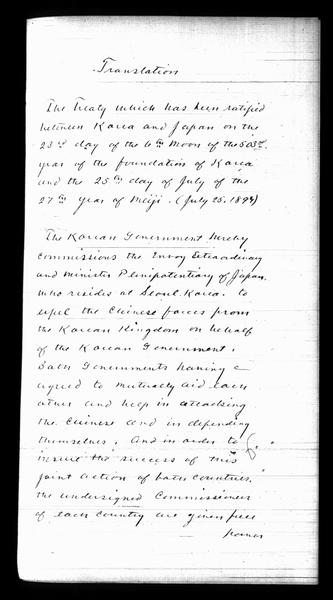 Translation
The Treaty which has been ratified
between Korea and Japan on the
23rd day of the 6th Moon of the 503rd
year of the foundation of Korea
and the 25th day of July of the
27th year of Meiji. (July 25, 1894)
The Korean Government hereby
commissions the Envoy Extraordinary
and Minister Plenipotentiary of Japan
who resides at Seoul Korea, to
expel the Chinese forces from
the Korean Kingdom on behalf
of the Korean Government.
Both Governments having
agreed to mutually aid each
other and help in attacking
the Chinese and in defending
themselves. And in order to
insure the success of this
joint action of both countries.
the undersigned Commissioner
of each country are given full
powers